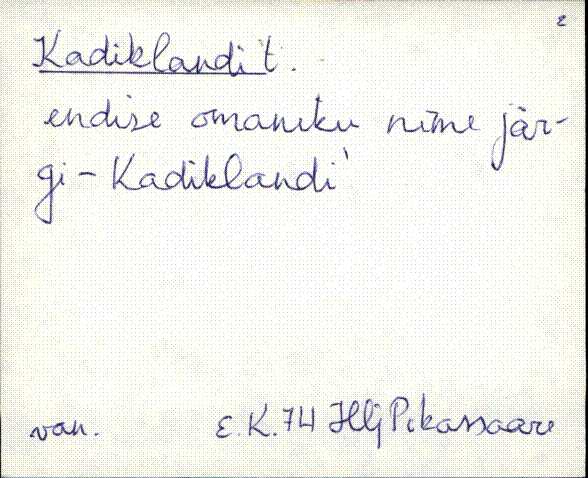 2
Kadiklandi t.
endise omaniku nime jär-
gi - Kadiklandi'
van. E.K. 74 Hlj Pikassaare